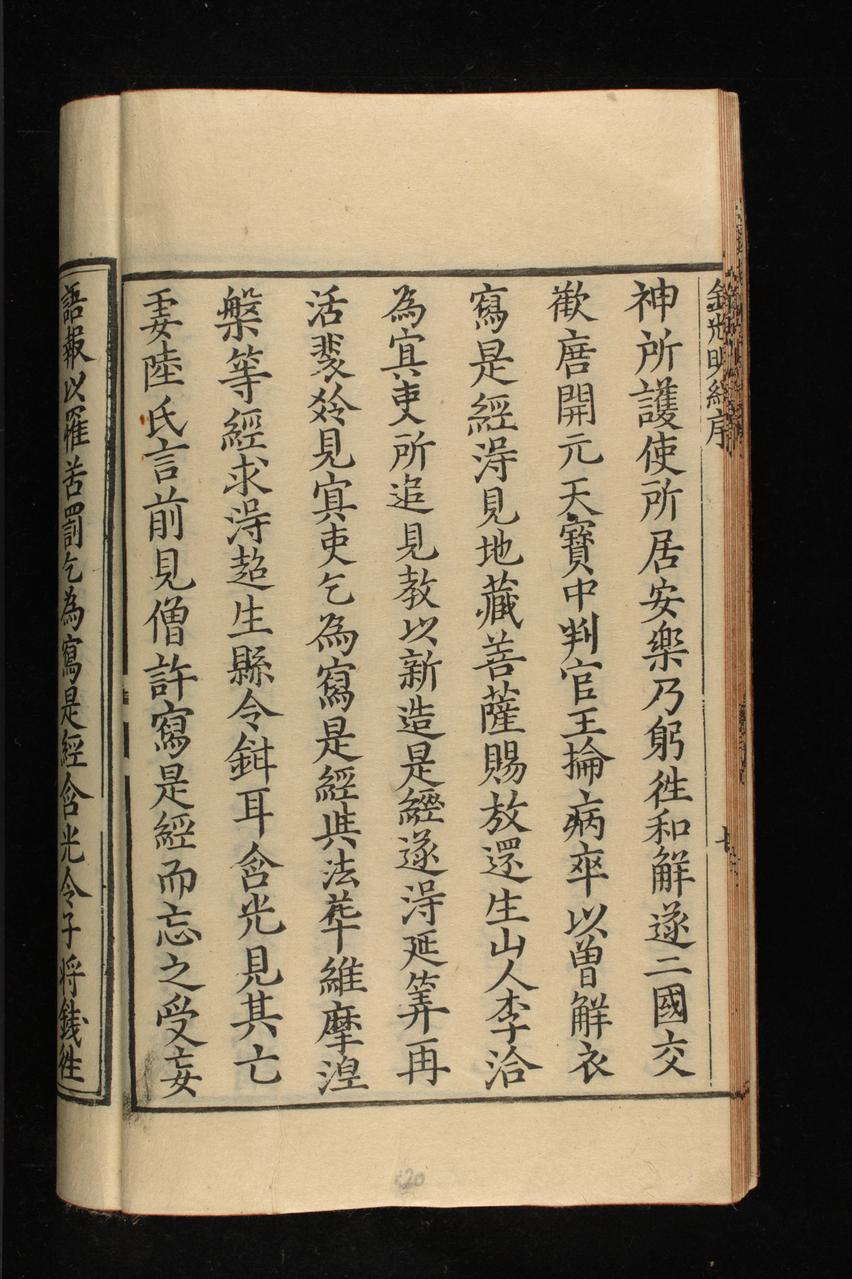 明經序
神所護使所居安樂乃躬徃和解遂二國交
歡唐開元天寶中判官王掄病卒以曽解衣
寫是經淂見地藏菩薩賜放還生山人李洽
為㝠吏所追見教以新造是經遂淂延筭再
活裴齡見㝠吏乞為寫是經共法華維摩涅
槃等經求淂超生縣令鉗耳含光見其亡
妻陸氏言前見僧許寫是經而忘之受妄
語報以罹苦罰乞為寫是經含光令子将錢徃
20